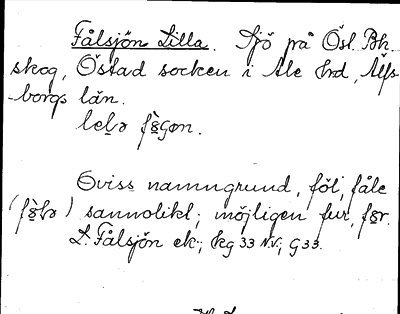 Fålsjön Lilla. Sjö på Östl. Bk.
skog, Östad socken i Ale hrd, Älfs-
-borgs län.
Oviss namngrund, föl, fåle
sannolikt; möjligen fur, 
L. Fålsjön ek.; kg 33 NV; G 33.